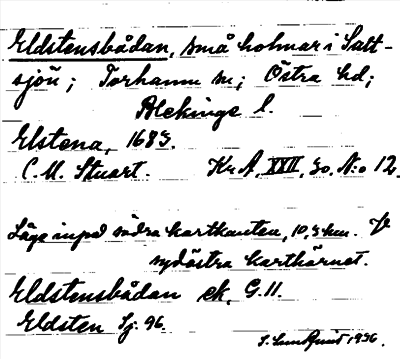 Eldstensbådan, små holmar i Salt-
sjön; Torhamn sn; Östra hd;
Blekinge l.
Elstena, 1683.
C. M. Stuart. Kr A, XXII, 30, N:o 12.
Läge inpå södra kartkanten, 10,3 km. fr
sydöstra karthörnet.
Eldstensbådan ek. G. 11.
Eldsten Sj. 96.
1936.